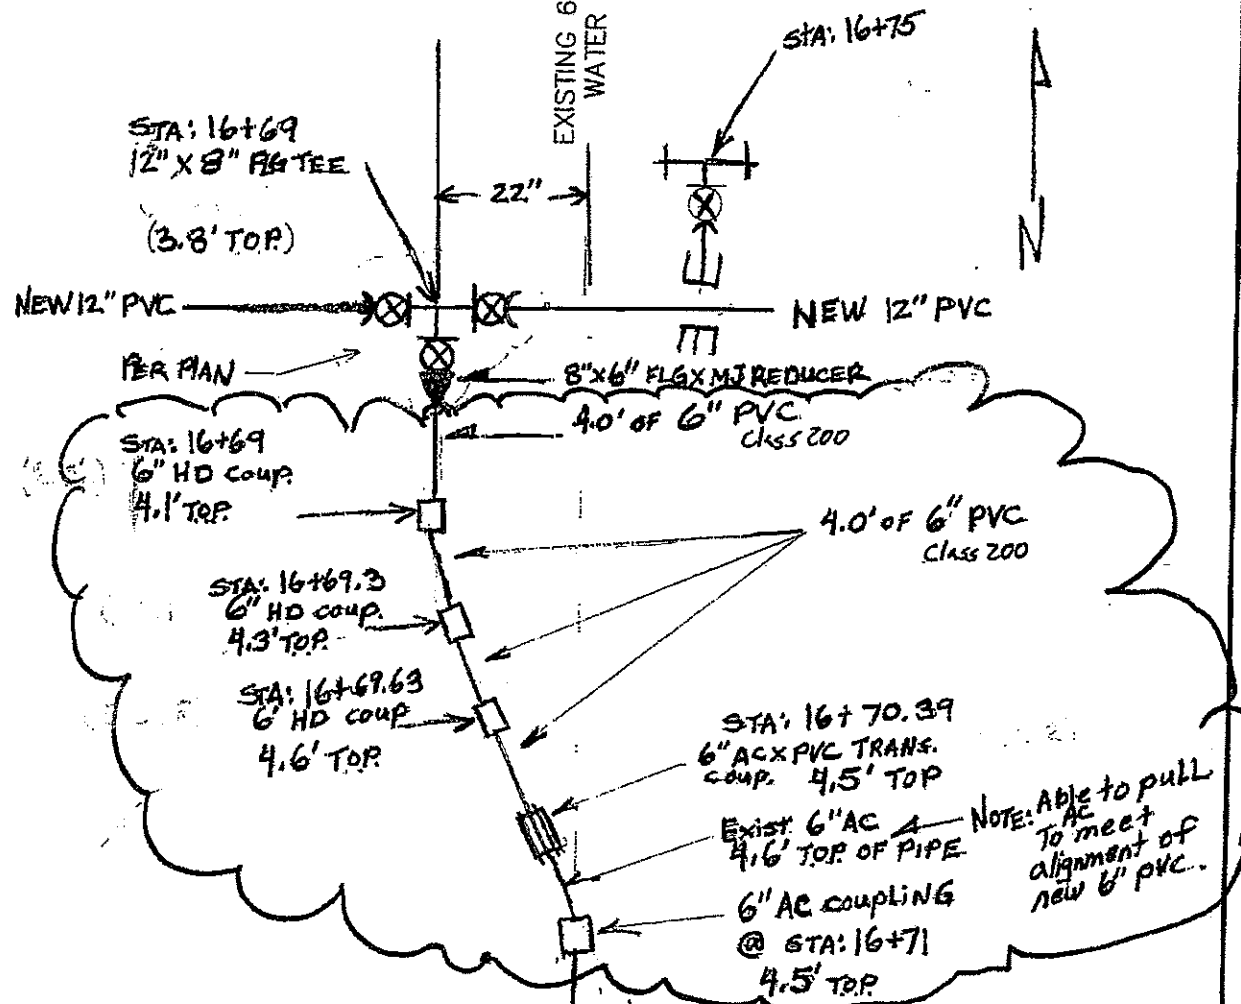 EXISTING 6
WATER
STA: 16+75
STA: 16+69
12" X 8" FLG TEE
(3.8' T.O.P.)
22"
N
NEW 12" PVC
NEW 12" PVC
PER PLAN
8"x6" FLG X MJ REDUCER
4.0' OF 6" PVC
Class 200
STA: 16+69
6" HD coup.
4.1' T.O.P.
4.0' OF 6" PVC
Class 200
STA: 16+69.3
6" HD coup.
4.3' T.O.P.
STA: 16+69.63
6' HD coup
4.6' T.O.P.
STA: 16+70.39
6" AC X PVC TRANS.
coup. 4.5' TOP
Exist. 6" AC
4.6' TOP. OF PIPE
NOTE: Able to pull
AC
To meet
alignment of
new 6" PVC.
6" AC coupling
@ STA: 16+71
4.5' T.O.P.